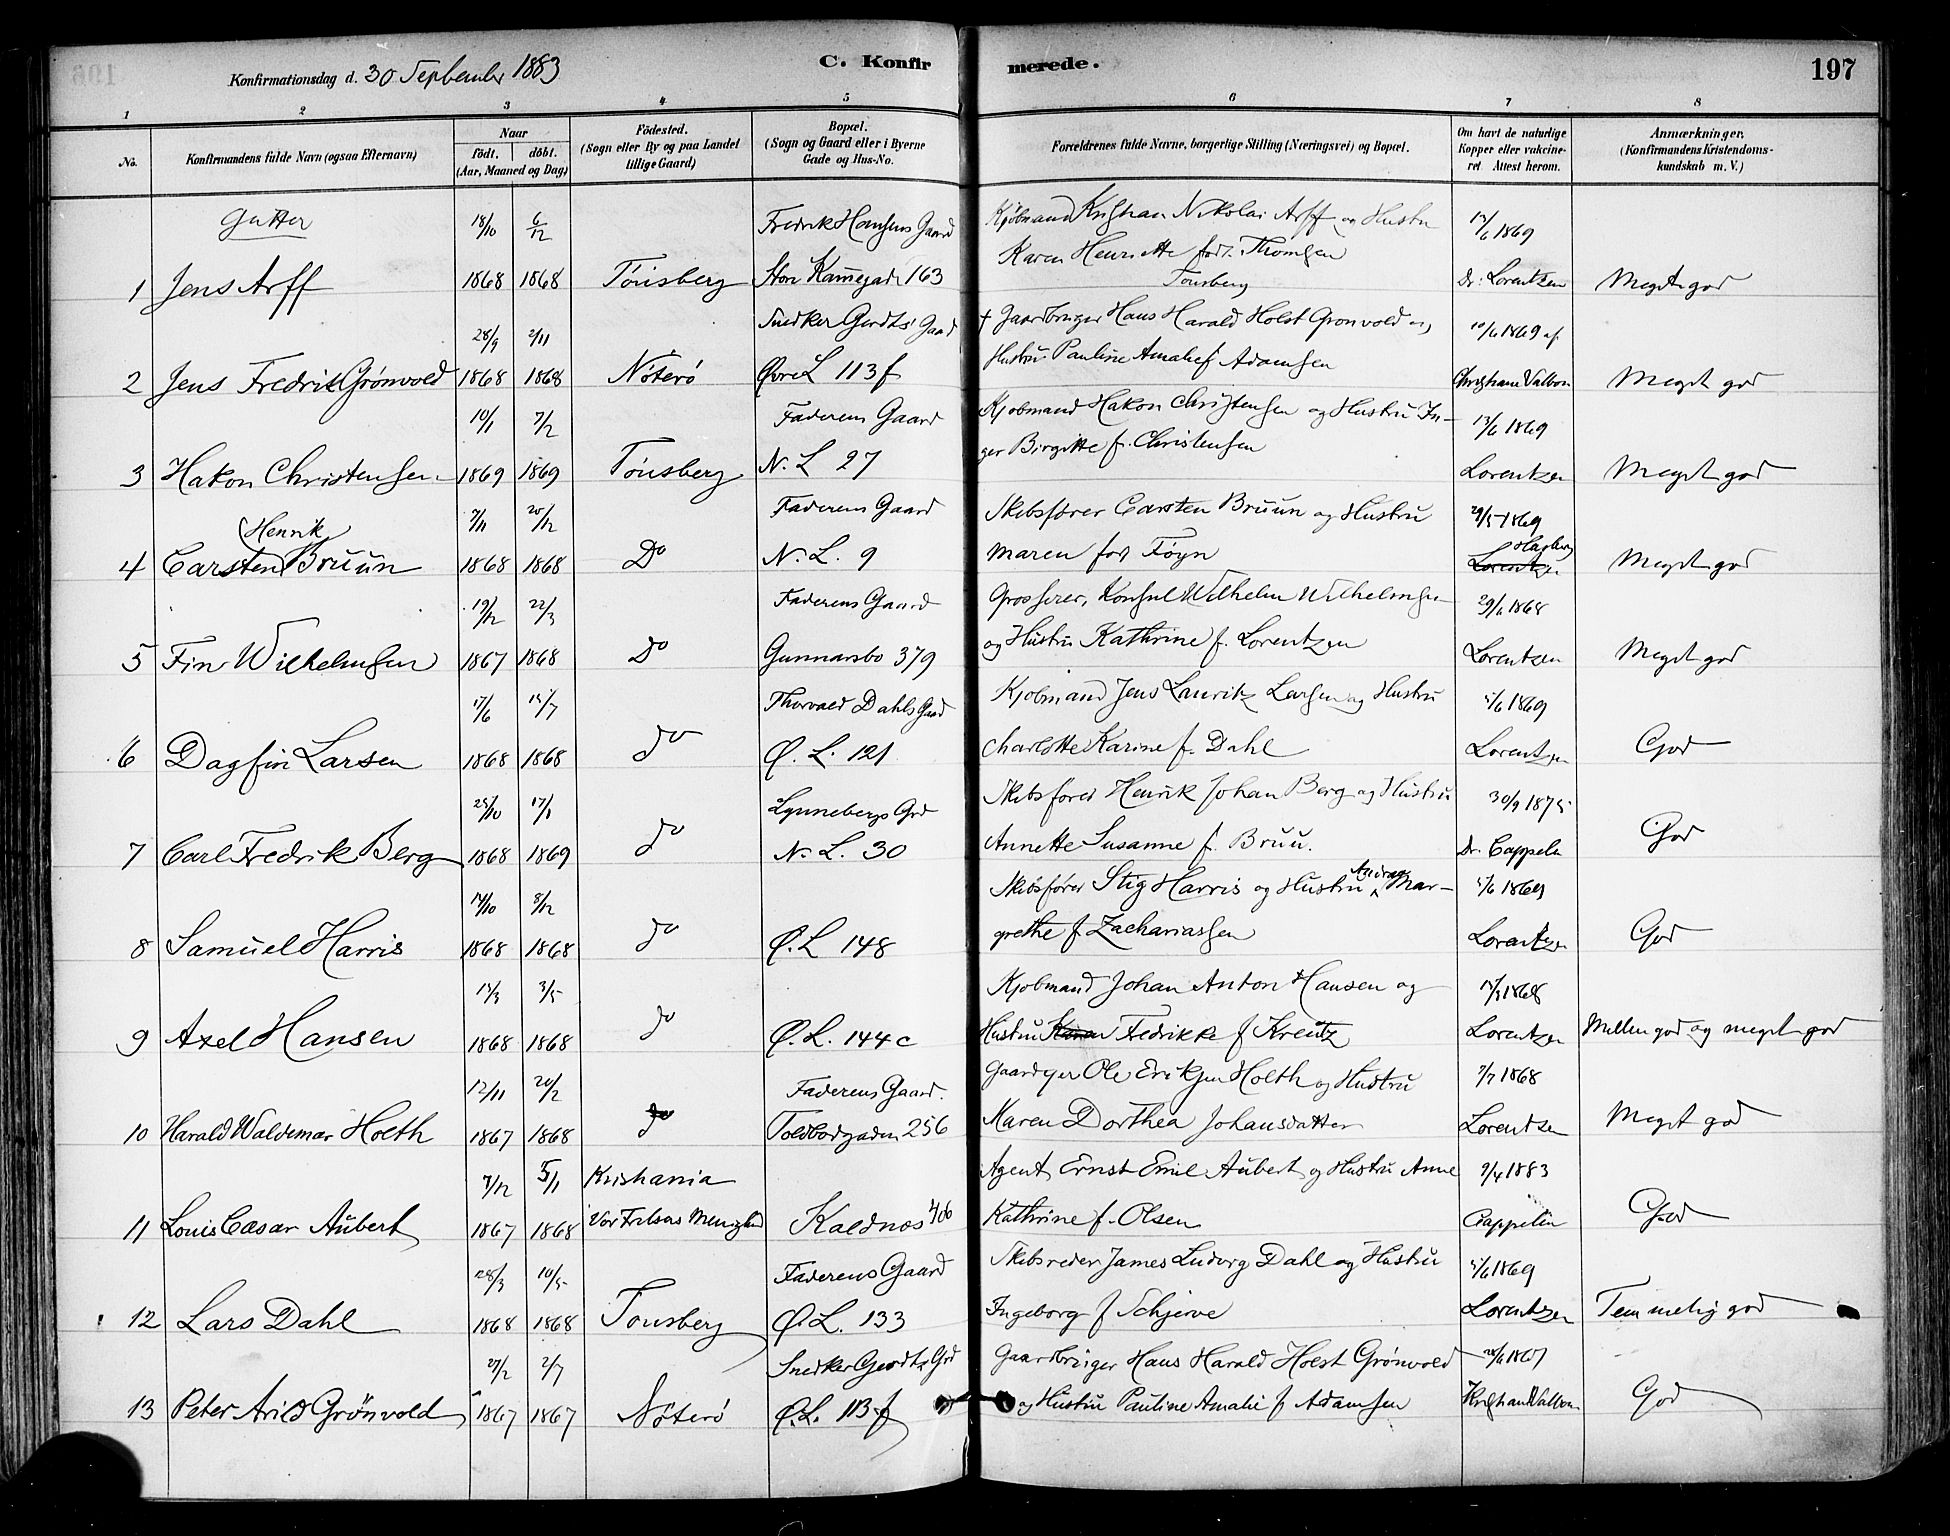 Konfirmationsdag d. 30 September 1883
C. Konfirmerede.
197
1 2 3 4 5 6 7 8
No.
Konfirmandens fulde Navn (ogsaa Efternavn)
Naar
født. døbt.
(Aar, Maaned og Dag)
Födested.
(Sogn eller By og paa Landet
tillige Gaard)
Bopæl.
(Sogn og Gaard eller i Byerne
Gade og Hus-No.
Forældrenes fulde Navne, borgerlige Stilling (Næringsvei) og Bopæl.
Om havt de naturlige
Kopper eller vakcine-
ret Attest herom.
Anmærkninger.
(Konfirmandens Kristendoms-
kundskab m. V.)
Gutter
18/10 6/12 Fredrik Hansens Gaard Kjøbmand Kristian Nikolai Arff og Hustru 1869
Karen Henriette født Thomsen
1 Jens Arff 1868 1868 Tönsberg Store 163 Tönsberg Dr. Lorentzen Meget god
28/9 2/11 Snedker Gerdts' Gaard † Gaardbruger Hans Harald Holst Grønvold og 10/6 1869 af
2 Jens Fredrik Grønvold 1868 1868 Nöterö Øvre L 113 f Hustru Pauline Amalie f Adamsen Christiane Valbom Meget god
10/1 7/2 Faderens Gaard Kjøbmand Hakon Christensen og Hustru In- 13/6 1869
3 Hakon Christensen 1869 1869 Tönsberg N. L 27 ger Birgitte f. Christensen Lorentzen Meget god
7/11 20/12 Faderens Gaard Skibsfører Carsten Bruun og Hustru 29/5 1869
Henrik Hagberg
4 Carsten Bruun 1868 1868 Do N. L. 9 Maren født Föyn Lorentzen Meget god
19/12 22/3 Faderens Gaard Grosserer, Konsul Wilhelm Wilhelmsen 29/6 1868
5 Fin Wilhelmsen 1867 1868 Do Gunnarsbo 379 og Hustru Kathrine f. Lorentzen Lorentzen Meget god
17/6 15/7 Thorvald Dahls Gaard Kjøbmand Jens Lauritz Larsen og Hustru 5/6 1869
6 Dagfin Larsen 1868 1868 do Ø. L. 121 Charlotte Karine f. Dahl Lorentzen God
25/10 17/1 Lynnebergs Grd Skibsfører Henrik Johan Berg og Hustru 30/9 1875
7 Carl Fredrik Berg 1868 1869 do N. L. 30 Annette Susanne f. Bruu. Dr. Cappelen God
14/10 8/12 Skibsfører Stig Harris og Hustru Andrea Mar- 5/6 1869
8 Samuel Harris 1868 1868 do Ø. L 148 grethe f Zachariassen Lorentzen God
13/3 3/5 Kjøbmand Johan Anton Hansen og 1868
9 Axel Hansen 1868 1868 do Ø. L. 144 c Hustru Karen Fredrikke f Kreutz Lorentzen Mellem god og meget god
12/11 20/2 Faderens Gaard. Ole Eriksen Holth og Hustru 7/7 1868
10 Harald Waldemar Holth 1867 1868 do Toldbodgaden 256 Maren Dorthea Johansdatter Lorentzen Meget god
7/12 5/1 Kristiania Agent, Ernst Emil Aubert og Hustru Anne 9/4 1883
11 Louis Cæsar Aubert 1867 1868 Vor Frelsers Menighed Kaldnæs 406 Kathrine f. Olsen Cappelen God
28/3 10/5 Faderens Gaard Skibsreder James Ludvig Dahl og Hustru 5/6 1869
12 Lars Dahl 1868 1868 Tönsberg Ø. L. 133 Ingeborg f Schjerve Lorentzen Temmelig god
27/2 2/7 Snedker Gerdts Grd Gaardbruger Hans Harald Holst Grønvold 1867
13 Peter Arild Grönvold 1867 1867 Nöterö Ø. L. 113 f og Hustru Pauline Amalie f Adamsen Kristian Valbom God